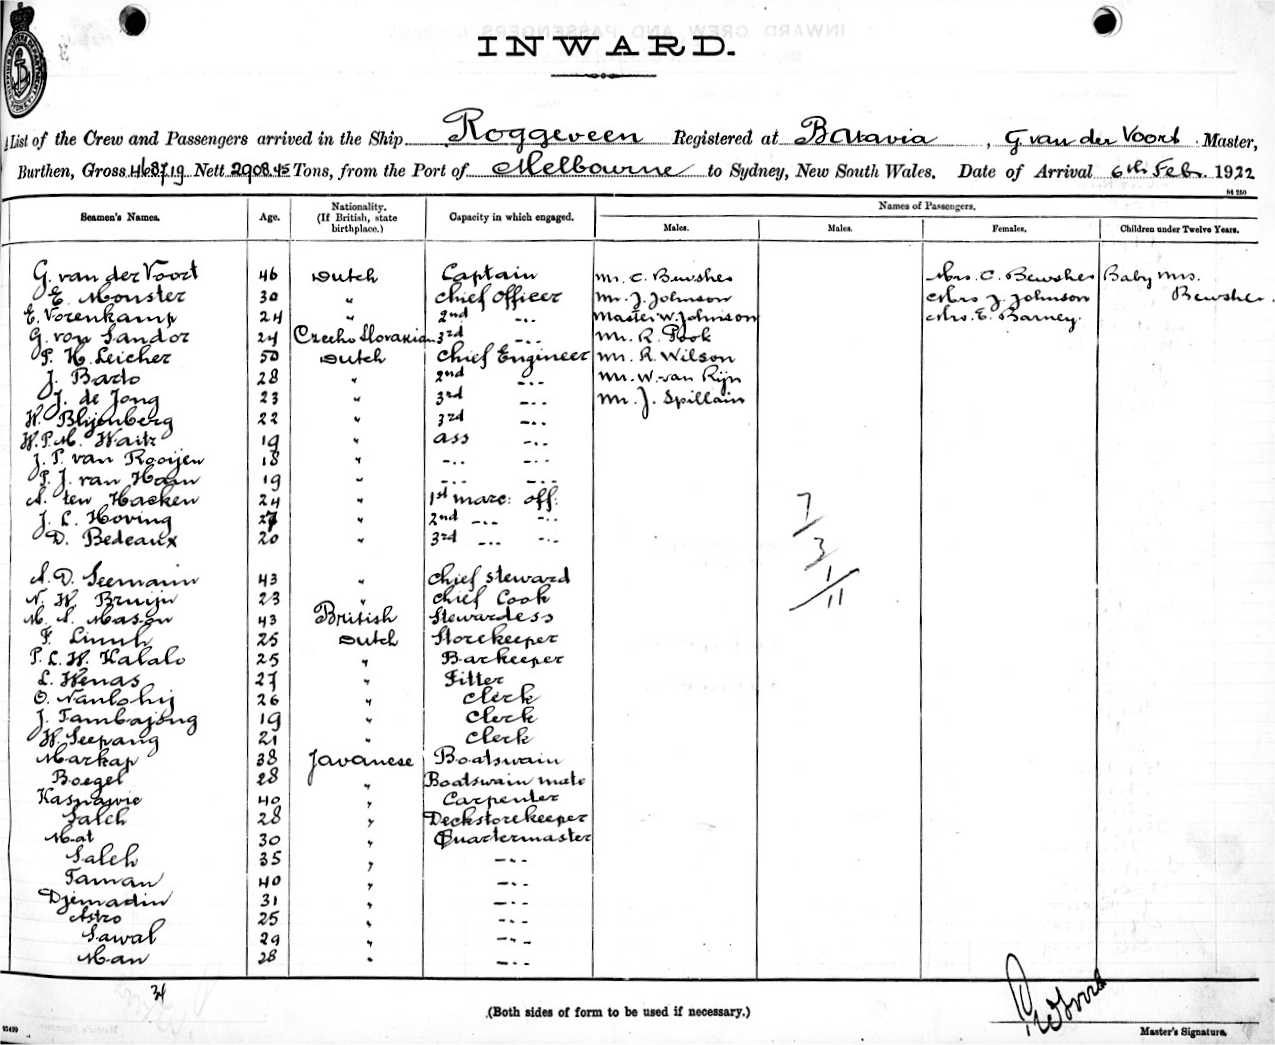 INWARD.
List of the Crew and Passengers arrived in the Ship Roggeveen Registered at Batavia, G. van der Voort Master,
Burthen, Gross 4687.19 Nett 2908.45 Tons, from the Port of Melbourne to Sydney, New South Wales. Date of Arrival 6th Feb. 1922
Seamen's Names. Age. Nationality. (If British, state birthplace.) Capacity in which engaged. Names of Passengers.
Males. Males. Females. Children under Twelve Years.
G. van der Voort 46 Dutch Captain Mr. C. Bewsher Mrs. C. Bewsher Baby Mrs.
E. Monster 30 " Chief Officer Mr. J. Johnson Mrs J. Johnson Bewsher.
E. Vorenkamp 24 " 2nd -..- Master W. Johnson Mrs. E. Barney.
G. von Sandor 24 Czecho Slovakian 3rd -..- Mr. R. Pook
P. H. Leicher 50 Dutch Chief Engineer Mr. R. Wilson
J. Barto 28 " 2nd -..- Mr. W. van Rijn
J. de Jong 23 " 3rd -..- Mr. J. Spillain
W. Blijenberg 22 " 3rd -..-
W. P. M. Waitz 19 " ass -..-
J. P. van Rooijen 18 " -..- -..-
P. J. van Ham 19 " -..- -..-
A. ten Hacken 24 " 1st marc: off.
J. L. Hoving 27 " 2nd -..- -..-
D. Bedeaux 20 " 3rd -..- -..-
7
3
1
11
A. D. Seemann 43 " Chief steward
N. W. Bruijn 23 " Chief Cook
M. S. Mason 43 British Stewardess
F. 25 Dutch Storekeeper
P. L. W. Kalalo 25 " Barkeeper
L. Wenas 27 " Fitter
O. Nanlohij 26 " Clerk
J. Tambajong 19 " Clerk
W. Seepang 21 " Clerk
Markap 38 Javanese Boatswain
Boegel 28 " Boatswain mate
Kasnawie 40 " Carpenter
Saleh 28 " Deckstorekeeper
Mat 30 " Quartermaster
Saleh 35 " -..-
Taman 40 " -..-
Djemadin 31 " -..-
Astro 25 " -..-
Sawal 29 " -..-
Man 28 " -..-
34
(Both sides of form to be used if necessary.)
Master's Signature.